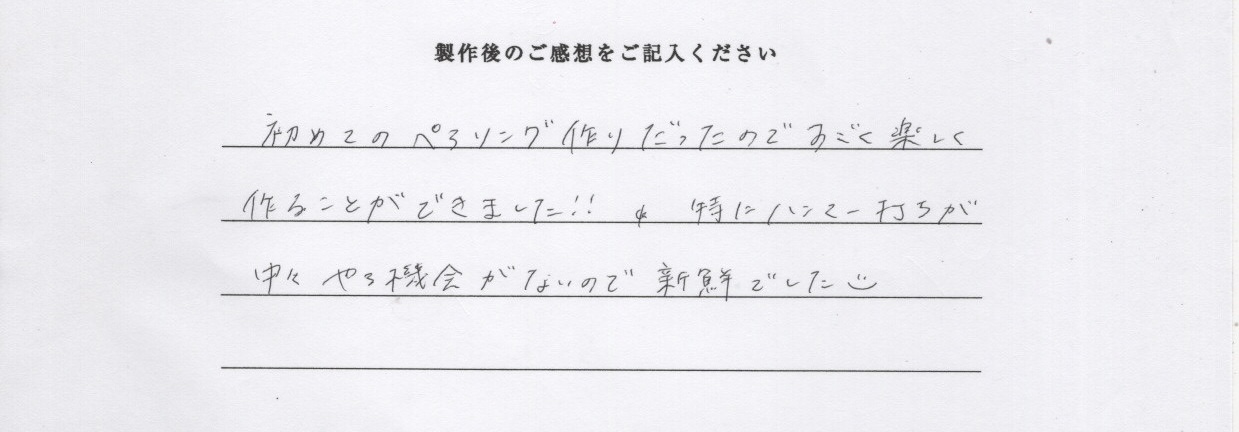 製作後のご感想をご記入ください
初めてのペアリング作りだったのですごく楽しく
作ることができました!! 特にハンマー打ちが
中々やる機会がないので新鮮でした